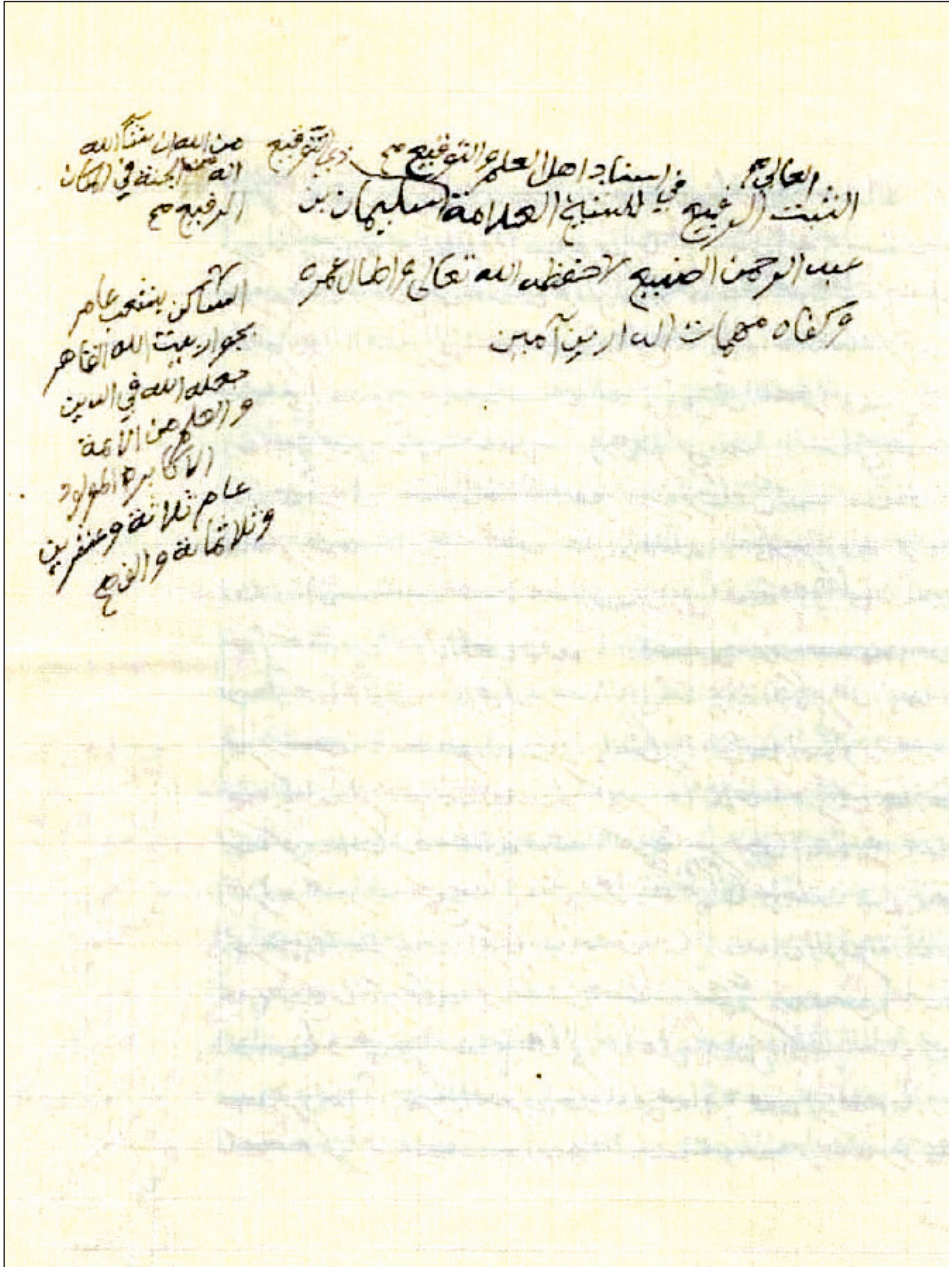 العالي صح
في اسناد اهل العلم والتوفيق صح
ذي التوفيق
الثبت الرفيع للشيخ العلامة سليمان بن
عبد الرحمن الصنيع حفظه الله تعالى واطال عمره
وكفاه مهمات الدارين آمين
من الله ان شآء الله
انه من الجنة في المكان
الرفيع صح
الساكن بشعب عامر
بجوار بيت الله القاهر
جعله الله في الدين
والعلم من الائمة
الاكابر المولود
عام ثلاثة وعشرين
وثلاثمائة والف صح